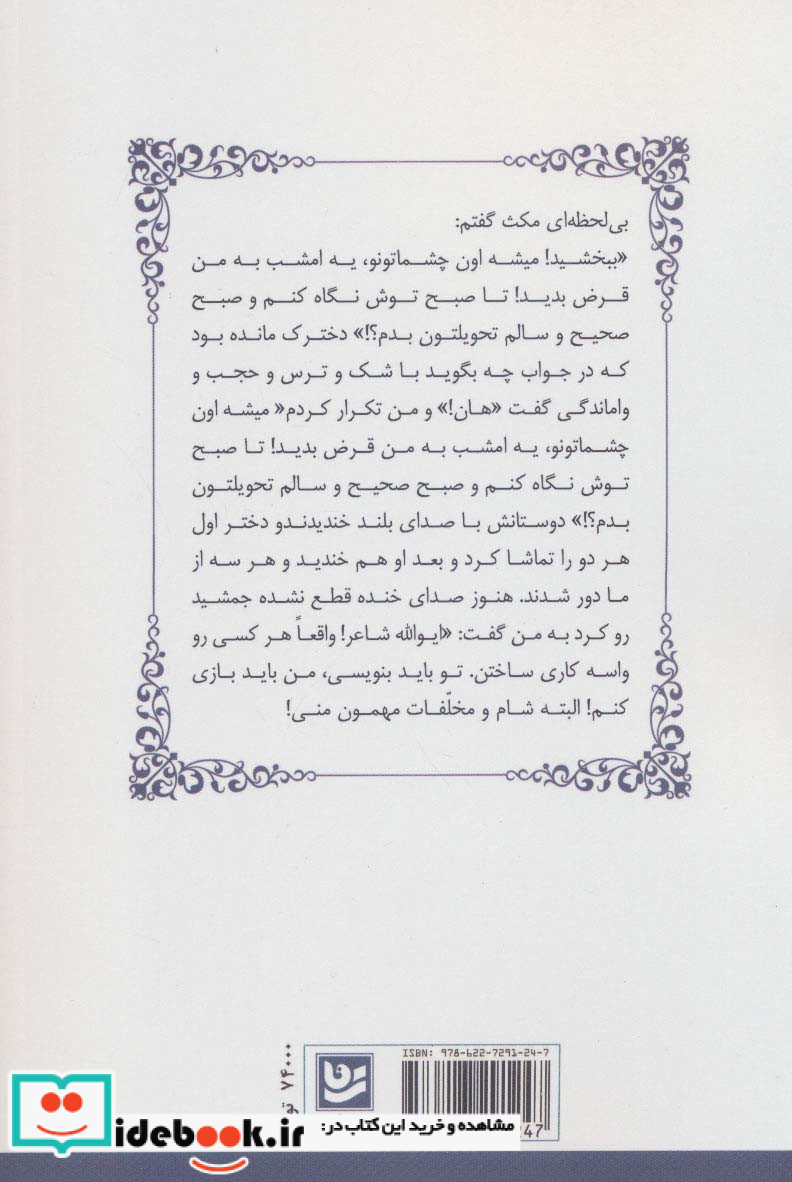 بی‌لحظه‌ای مکث گفتم:
«ببخشید! میشه اون چشماتونو، یه امشب به من
قرض بدید! تا صبح توش نگاه کنم و صبح
صحیح و سالم تحویلتون بدم؟!» دخترک مانده بود
که در جواب چه بگوید با شک و ترس و حجب و
واماندگی گفت «هان!» و من تکرار کردم« میشه اون
چشماتونو، یه امشب به من قرض بدید! تا صبح
توش نگاه کنم و صبح صحیح و سالم تحویلتون
بدم؟!» دوستانش با صدای بلند خندیدندو دختر اول
هر دو را تماشا کرد و بعد او هم خندید و هر سه از
ما دور شدند. هنوز صدای خنده قطع نشده جمشید
رو کرد به من گفت: «ایوالله شاعر! واقعاً هر کسی رو
واسه کاری ساختن. تو باید بنویسی، من باید بازی
کنم! البته شام و مخلّفات مهمون منی!
ISBN: 978-622-7291-24-7
۷۴۰۰۰ تو
247
مشاهده و خرید این کتاب در:
idebook.ir